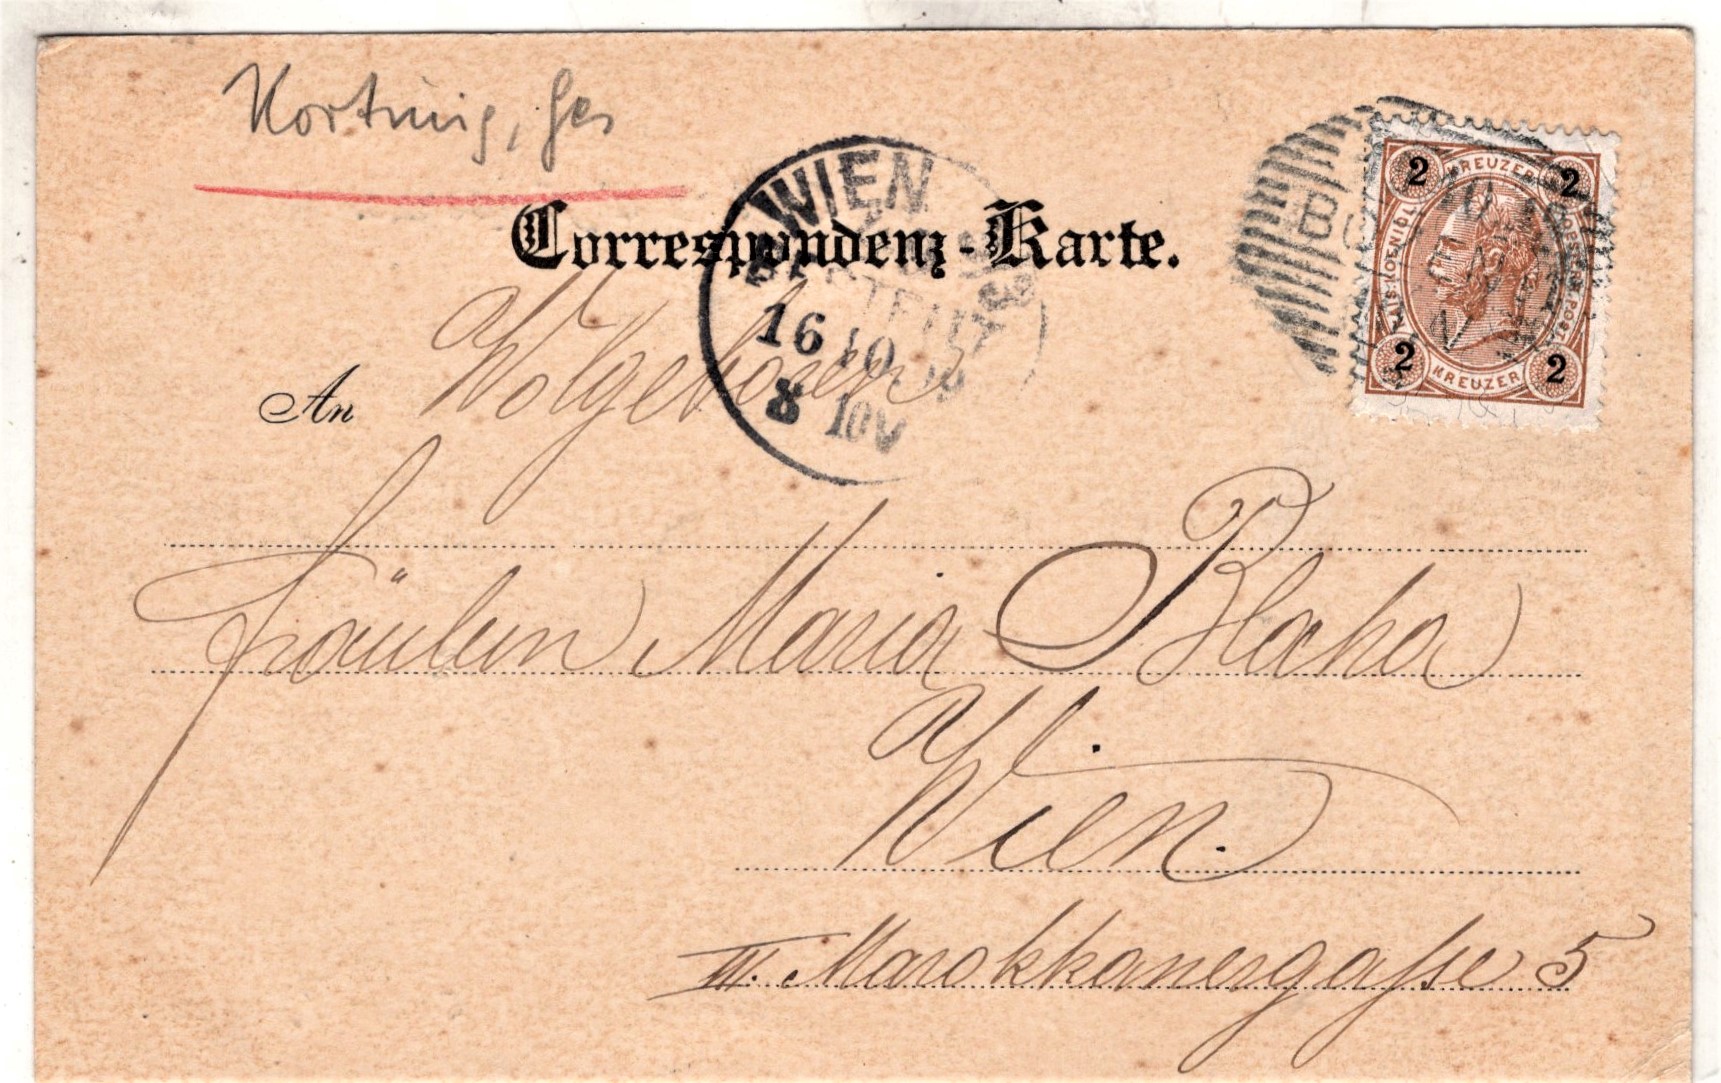 Correspondenz-Karte.
WIEN
16 10 99
8 10V
2 KREUZER 2
KAIS. KOENIGL.
2 KREUZER 2
An Wolgeboren
Fräulein Maria Blaha
Wien.
III. Marokkanergasse 5